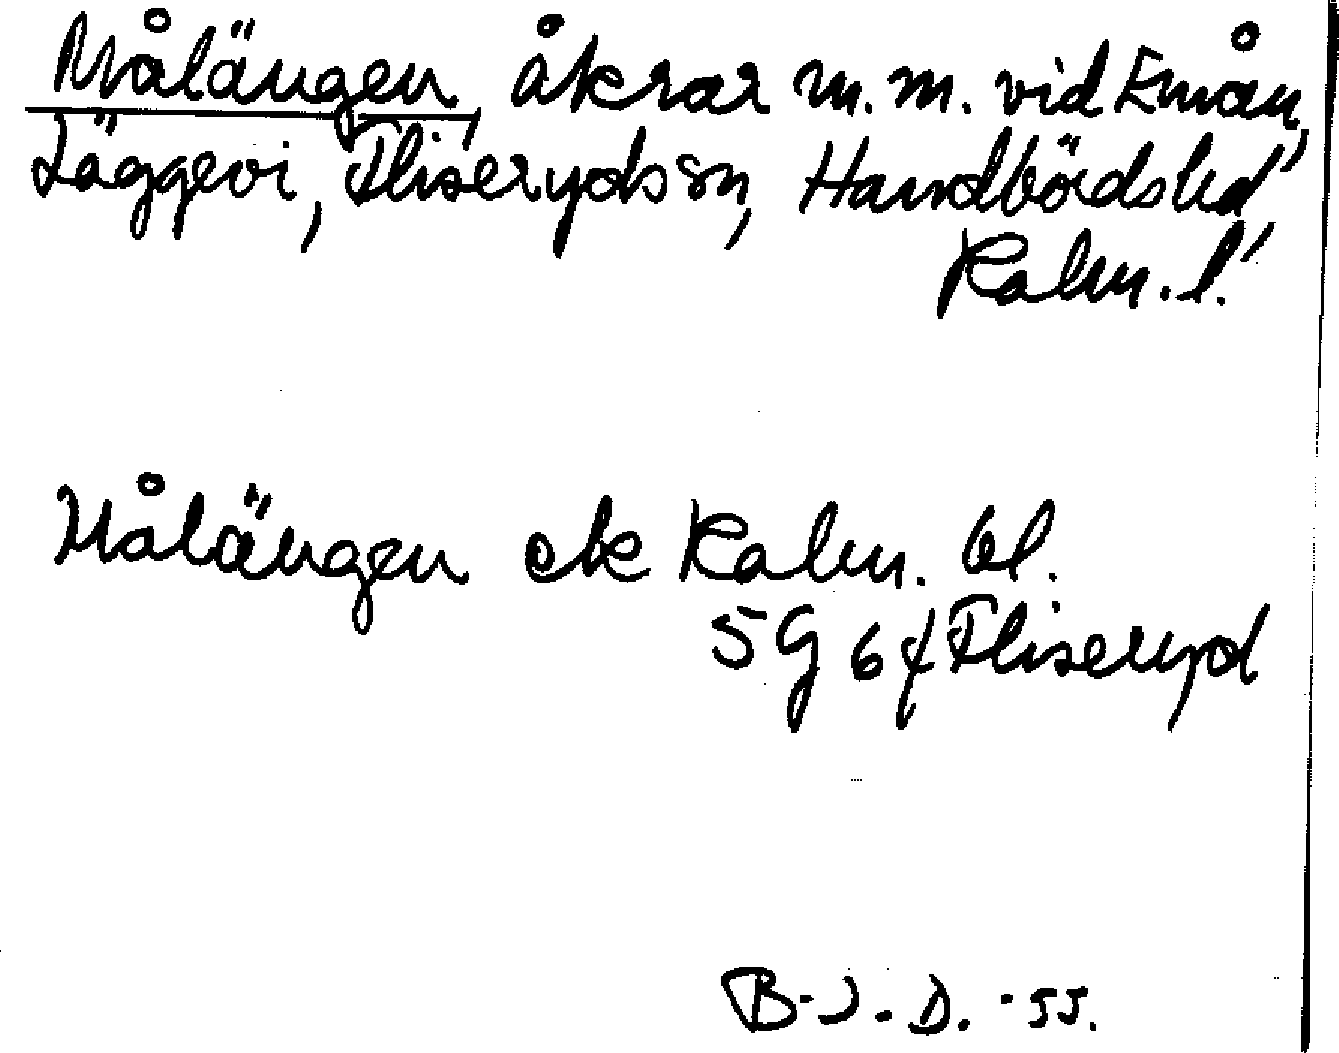 Målängen, åkrar m.m. vid Emån,
Läggevi, Fliseryds sn, Handbörds hd,
Kalm. l.
Målängen ek Kalm. bl.
5G 6f Fliseryd
B-J.D. -55.